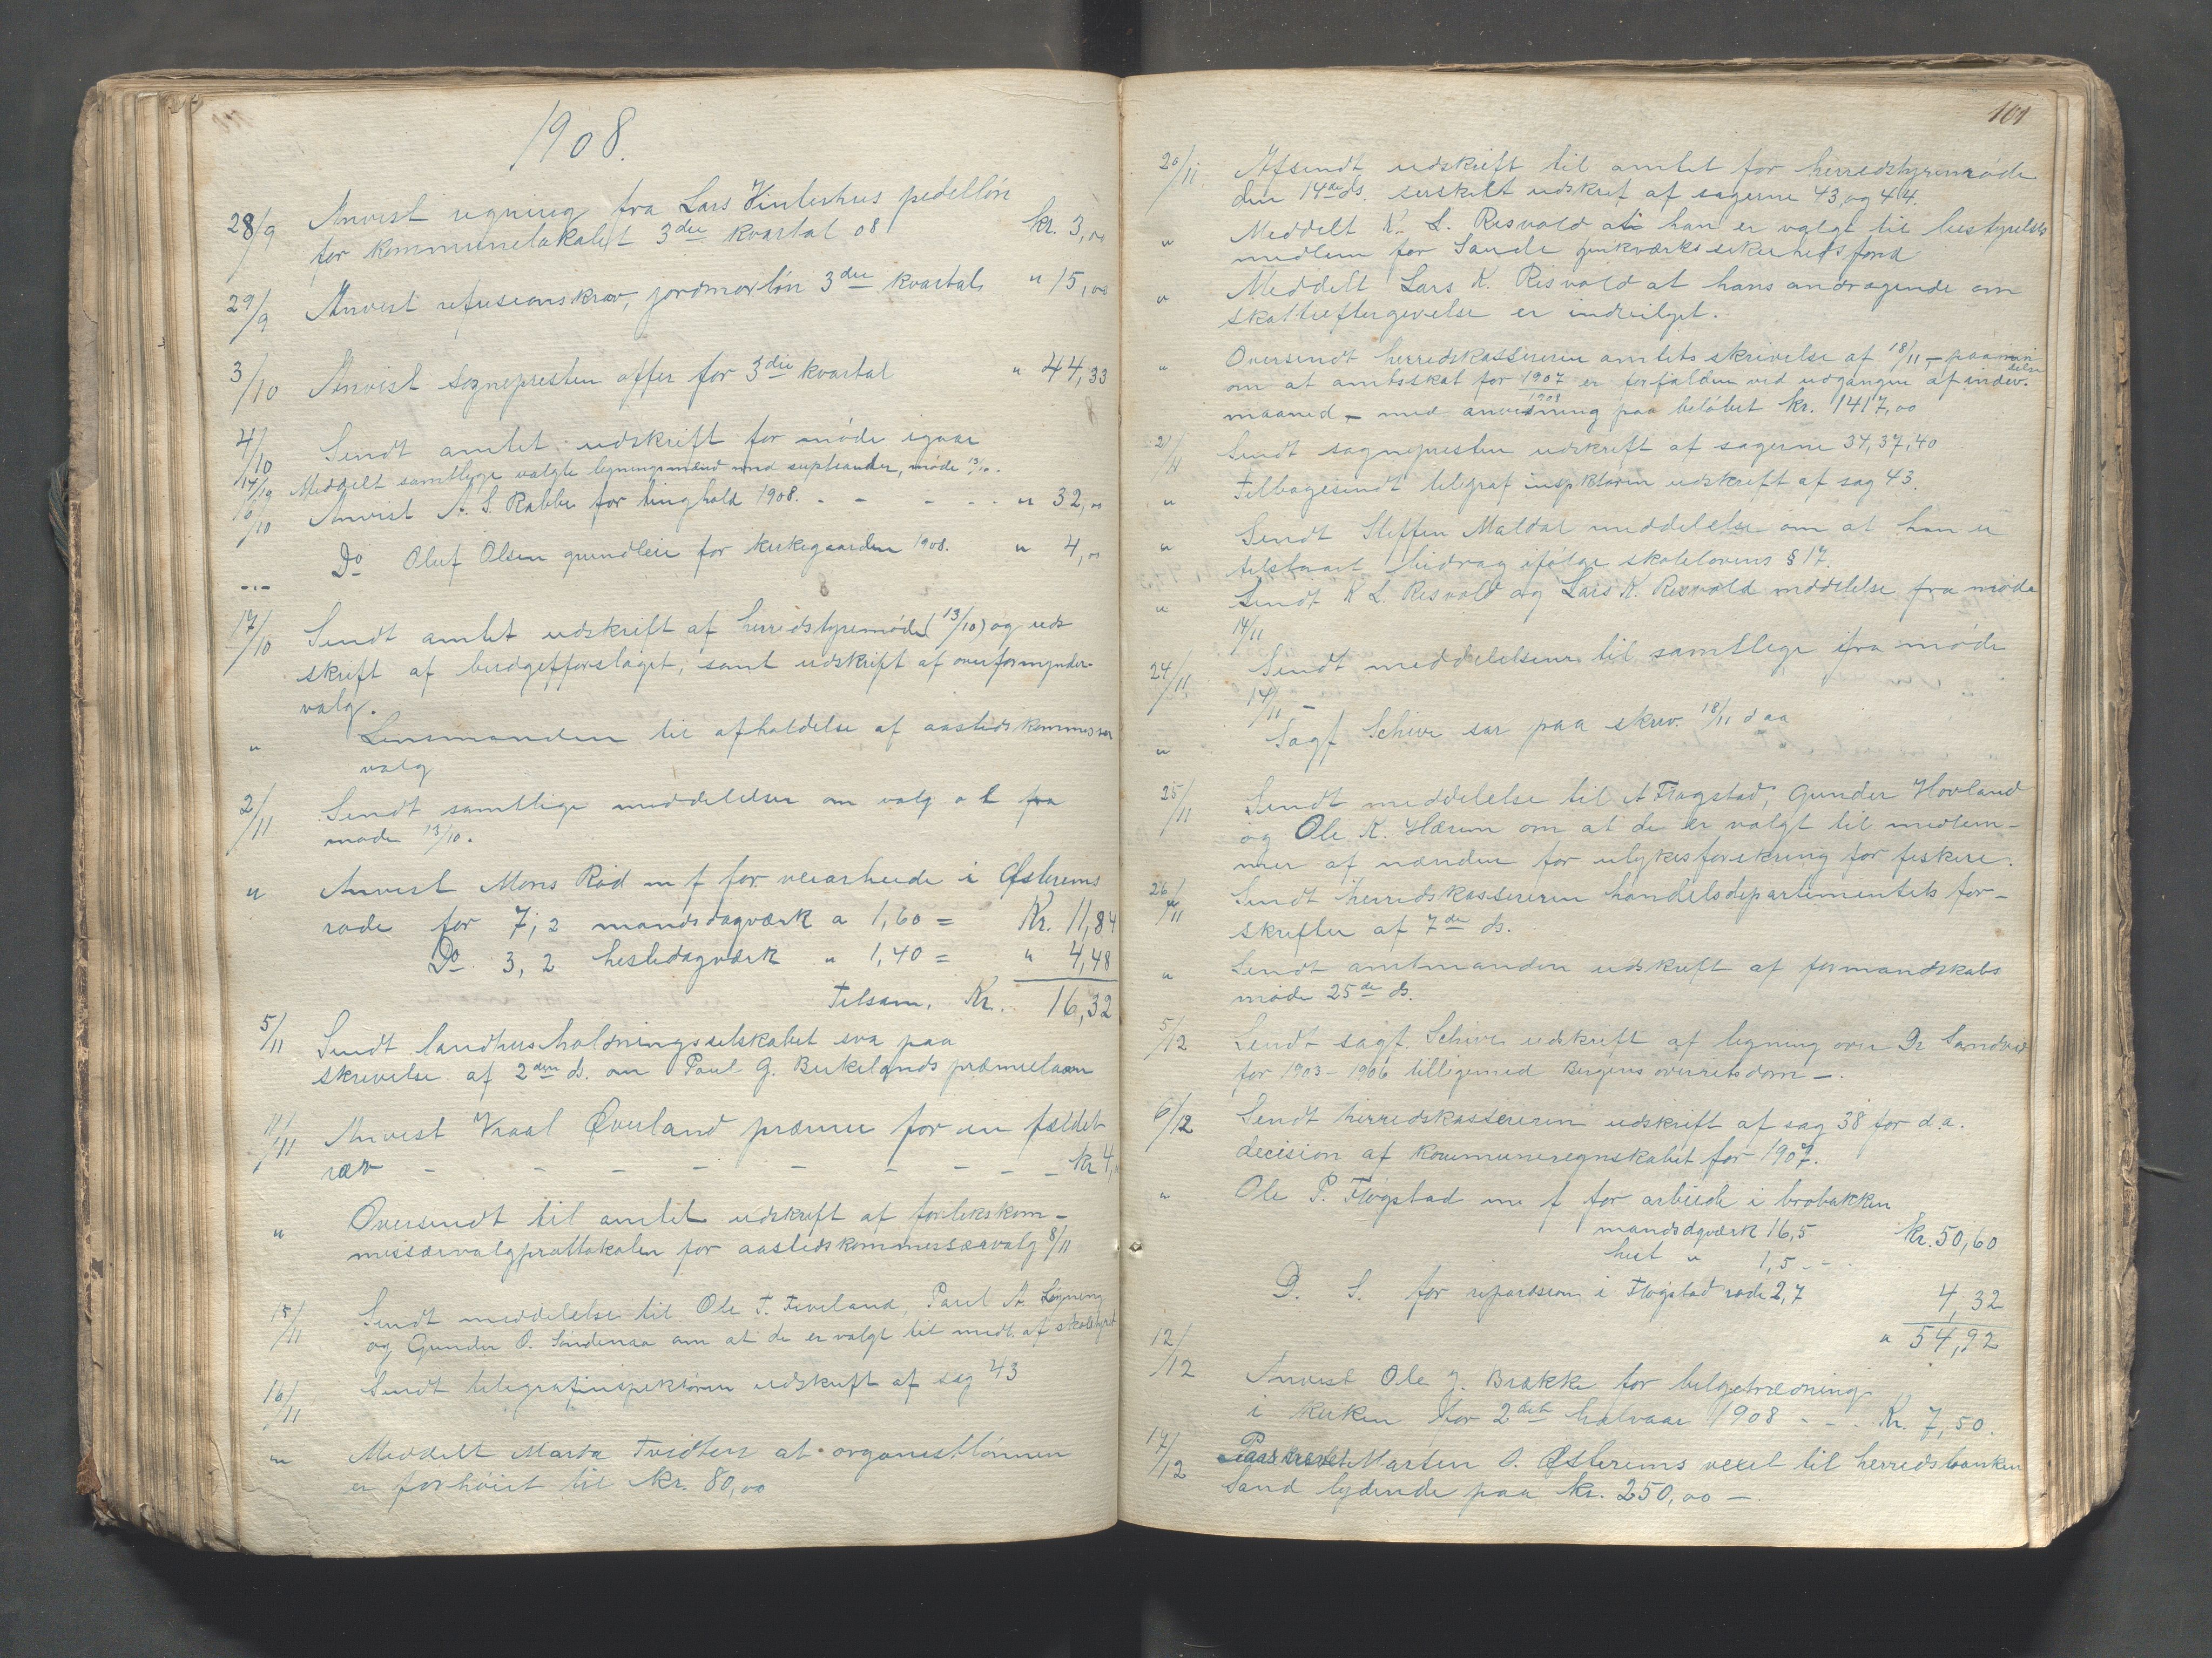 1908.
28/9 Anvist regning fra Lars Vinterhus pedelløn
for kommunelokalet 3die kvartal 08 kr. 3,00
29/9 Anvist refusionskrav, jordmorløn 3die kvartal " 15,00
3/10 Anvist sognepresten offer for 3die kvartal " 44,33
4/10 Sendt amtet udskrift for møde igaar
14/10 Meddelt samtlige valgte ligningsmænd med supleanter, møde 13/10.
10/10 Anvist A. S. Rabbe for tinghold 1908. - - - - - " 32,00
-"- Do Oluf Olsen grundleie for kirkegaarden 1908. " 4,00
17/10 Sendt amtet udskrift af herredstyremøde (13/10) og uds
skrift af budgetforslaget, samt udskrift af overformynder-
valg.
" Lensmanden til afholdelse af aastedskommisær
valg
2/11 Sendt samtlige meddelelser om valg o l fra
møde 13/10.
" Anvist Mons Rød m f for veiarbeide i Østerems
rode for 7,2 mandsdagværk a 1,60 = Kr. 11,84
Do. 3,2 hestedagværk " 1,40 = " 4,48
Tilsam. Kr. 16,32
5/11 Sendt landhusholdningsselskabet sva paa
skrivelse af 2den ds. om Paul G. Birkelands præmielaan
11/11 Anvist Vraal Øverland præmie for en fældet
ræv - - - - - - - - kr 4,00
" Oversendt til amtet udskrift af forlikskom-
missærvalgprottokolen for aastedskommissærvalg 8/11
15/11 Sendt meddelelse til Ole T. Tveland, Paul A. Løining
og Gunder O. Søndenaa om at de er valgt til medl. af skolestyret
16/11 Sendt telegrafinspektøren udskrift af sag 43
" Meddelt Marta Tvidten at organistlønnen
er forhøiet til kr. 80,00
101
20/11 Afsendt udskrift til amtet for herredstyremøde
den 14de ds. serskilt udskrif af sagerne 43, og 44.
" Meddelt K. L. Risvold at han er valgt til bestyrelses
medlem for Saude sinkværks sikerhedsfond
" Meddelt Lars K. Risvold at hans andragende om
skatteeftergivelse er indvilget.
" Oversendt herredskassereren amtets skrivelse af 18/11 - paamin
delse
om at amtsskat for 1907 er forfalden ved udgangen af indev.
1908
maaned - med anvisning paa beløbet kr. 1417,00
21/11 Sendt sognepresten udskrift af sagerne 34, 37, 40
" Tilbagesendt telegrafinspktøren udskrift af sag 43.
" Sendt Steffen Maldal meddelelse om at han er
tilstaaet bidrag ifølge skolelovens § 17.
" Sendt K L. Risvold og Lars K. Risvold meddelelse fra møde
14/11
24/11 Sendt meddelelser til samtlige fra møde
14/11 -
" Sagf Schive sar paa skriv. 18/11 d aa
25/11 Sendt meddelelse til A Flogstad, Gunder Hovland
og Ole K. Hærem om at de er valgt til medlem-
mer af nævnden for ulykesforskring for fiskere.
26/11 Sendt herredskassereren handelsdepartementets for-
skrifter af 7de ds.
" Sendt amtmanden udskrift af formandskabs
møde 25de ds.
5/12 Sendt sagf. Schive udskrift af ligning over Dr Sandved
for 1903 - 1906 tilligemed Bergens overretsdom -.
6/12 Sendt herredskassereren udskrift af sag 38 for d. a.
decision af kommuneregnskabet for 1907.
" Ole P. Flogstad m f for arbeide i brobakken
mandsdgværk 16,5 kr. 50,60
hest " 1,5 - -
D. S. for reparasion i Flogstad rode 2,7 4,32
" 54,92
12/12 Anvist Ole J. Brække for belgetrædning
i kirken for 2det halvaar 1908 - - . Kr. 7,50.
14/12 Paaskrevet Marten O. Østerems vexel til herredsbanken
Sand lydende paa kr. 250,00 -.